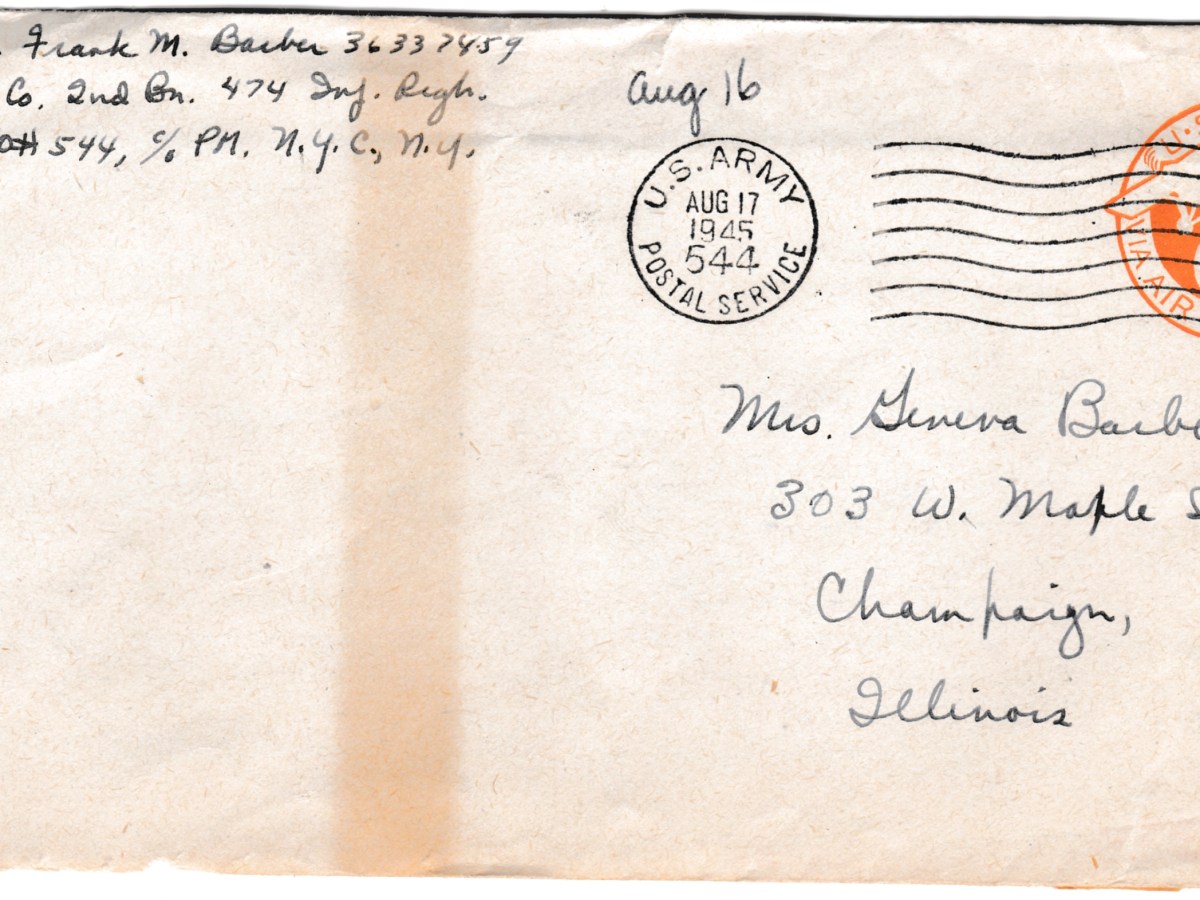 Frank M. Barber 36337459
Co. 2nd Bn. 474 Inf. Regt.
544, c/o PM. N.Y.C., N.Y.
Aug 16
U.S. ARMY
AUG 17
1945
544
POSTAL SERVICE
U.S
VIA AIR
Mrs. Geneva Barbe
303 W. Maple S
Champaign,
Illinois